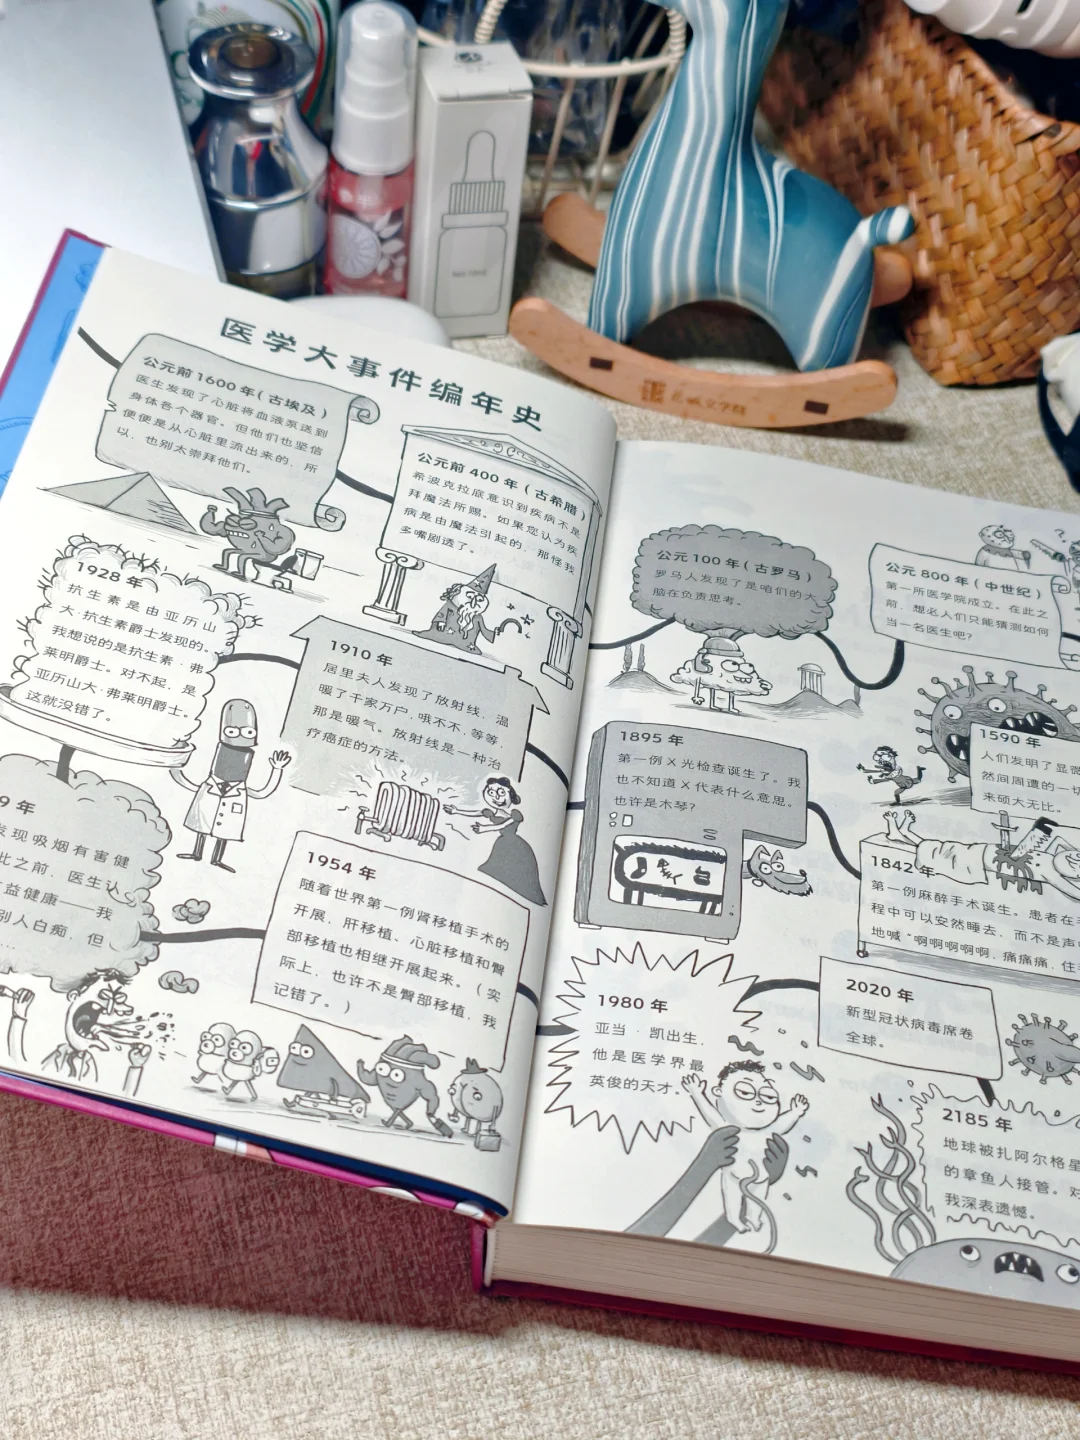 医学大事件编年史
公元前1600年(古埃及)
医生发现了心脏将血液泵送到
身体各个器官。但他们也坚信
便便是从心脏里流出来的，所
以，也别太崇拜他们。
公元前400年(古希腊)
希波克拉底意识到疾病不是
拜魔法所赐。如果您认为疾
病是由魔法引起的，那怪我
多嘴剧透了。
公元100年(古罗马)
罗马人发现了是咱们的大
脑在负责思考。
公元800年(中世纪)
第一所医学院成立。在此之
前，想必人们只能猜测如何
当一名医生吧?
1590年
人们发明了显微
然间周遭的一切
来硕大无比。
1842年
第一例麻醉手术诞生。患者在
程中可以安然睡去，而不是声
地喊“啊啊啊啊啊，痛痛痛，住
1895年
第一例X光检查诞生了。我
也不知道X代表什么意思。
也许是木琴?
1910年
居里夫人发现了放射线，温
暖了千家万户,哦不不,等等,
那是暖气。放射线是一种治
疗癌症的方法。
1928年
抗生素是由亚历山
大·抗生素爵士发现的。
我想说的是抗生素·弗
莱明爵士。对不起，是
亚历山大·弗莱明爵士。
这就没错了。
9年
发现吸烟有害健
比之前，医生认
益健康——我
别人白痴，但
…
1954年
随着世界第一例肾移植手术的
开展，肝移植、心脏移植和臀
部移植也相继开展起来。(实
际上，也许不是臀部移植，我
记错了。)
1980年
亚当·凯出生，
他是医学界最
英俊的天才。
2020年
新型冠状病毒席卷
全球。
2185年
地球被扎阿尔格星
的章鱼人接管。对
我深表遗憾。